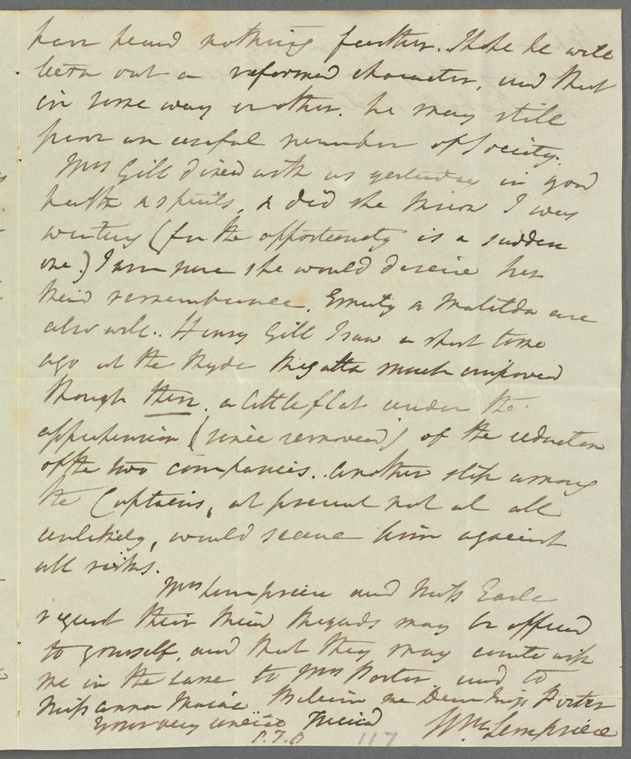 have heard nothing further. I hope he will
turn out a reformed character, and that
in some way or other. he may still
prove an useful member of Society.
Mrs Gill dined with us yesterday in good
health & spirits, & did she know I was
writing (for the opportunity is a sudden
one.) I am sure she would desire her
kind remembrance. Emily & Matilda are
also well. Henry Gill I saw a short time
ago at the Ryde Regatta much improved
though then. a little flat under the
apprehension (since removed) of the reduction
of the two companies. Another step among
the Captains, at present not at all
unlikely, would secure him against
all risks.
Mrs Lempriere and Miss Earle
request their kind Regards may be offered
to yourself, and that they may unite with
me in the same to Mrs Porter and to
Miss Anna Maria. Believe me Dear Miss Porter
Yours very sincere Friend
Wm Lempriere
P.T.O
117